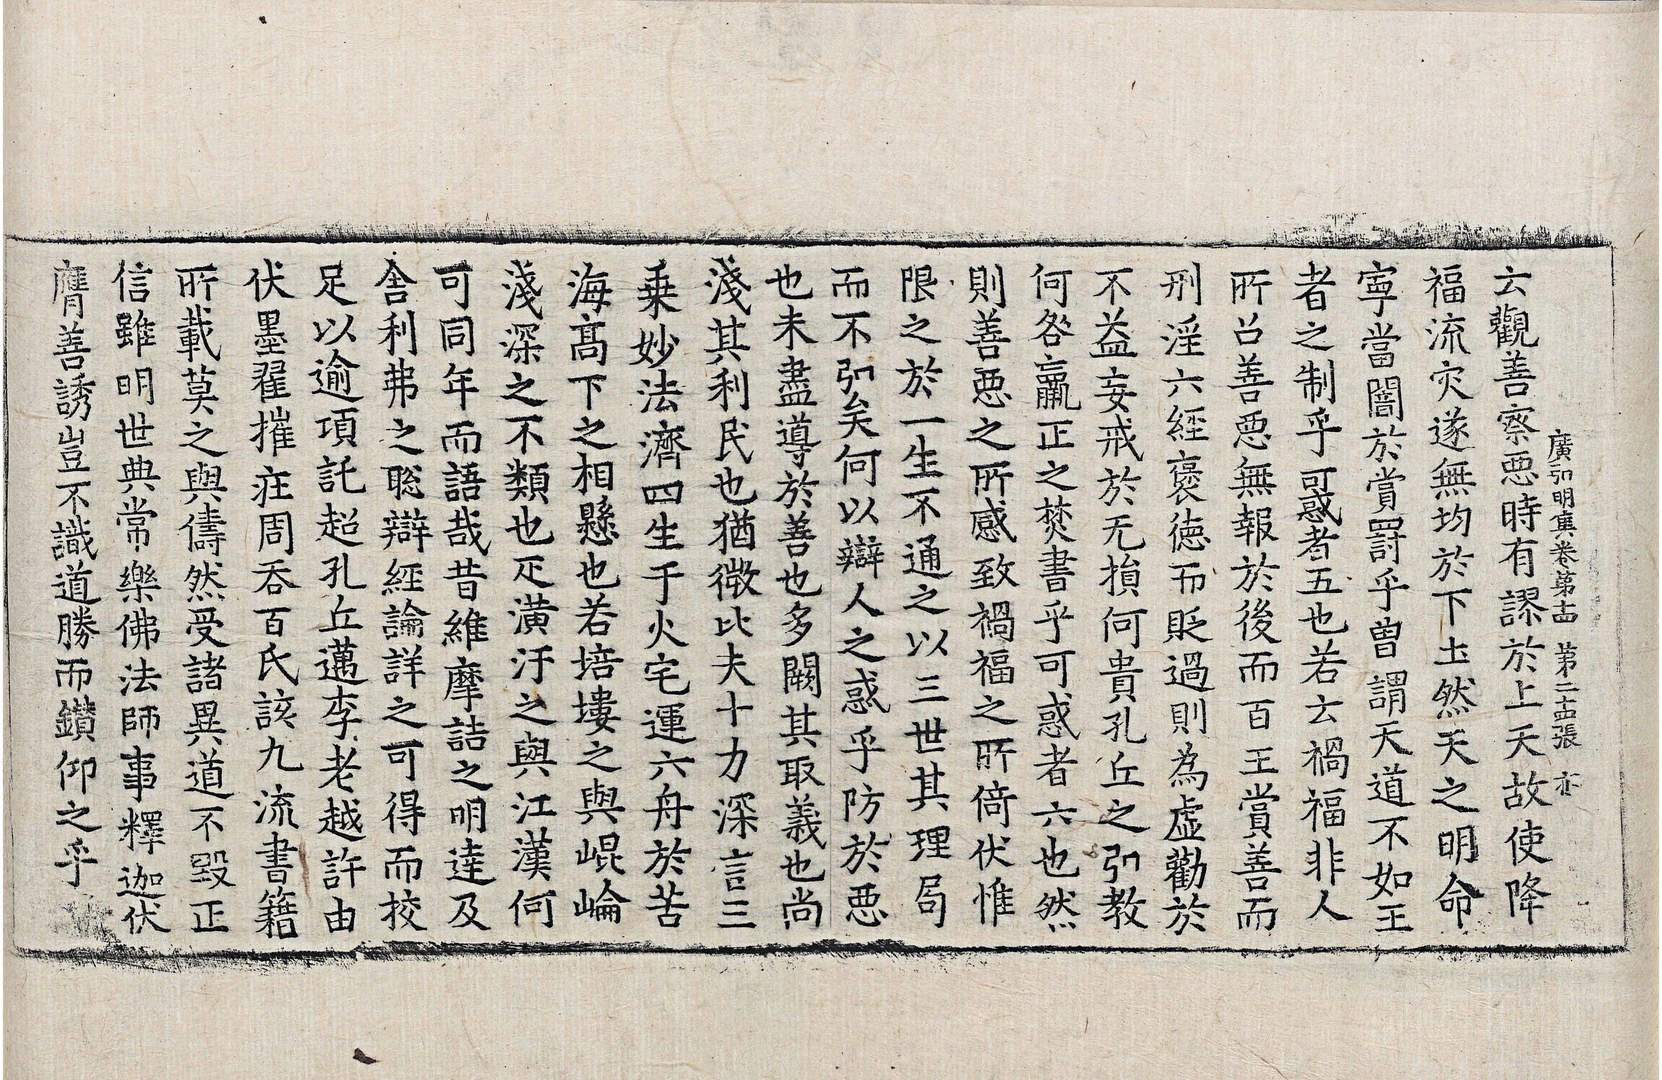 廣弘明集卷第十四 第二十四張 亦
云觀善察惡時有謬於上天故使降
福流灾遂無均於下土然天之明命
寧當闇於賞罰乎曽謂天道不如王
者之制乎可惑者五也若云禍福非人
所召善惡無報於後而百王賞善而
刑淫六經褒徳而貶過則為虚勸於
不益妄戒於无損何貴孔丘之弘教
何咎羸正之焚書乎可惑者六也然
則善惡之所感致禍福之所倚伏惟
限之於一生不通之以三世其理局
而不弘矣何以辯人之惑乎防於惡
也未盡導於善也多闕其取義也尚
淺其利民也猶微比夫十力深言三
乗妙法濟四生于火宅運六舟於苦
海髙下之相懸也若培塿之與崐崘
淺深之不類也疋潢汙之與江漢何
可同年而語哉昔維摩詰之明達及
舎利弗之聡辯經論詳之可得而挍
足以逾項託超孔丘邁李老越許由
伏墨翟摧莊周吞百氏該九流書籍
所載莫之與儔然受諸異道不毀正
信雖明世典常樂佛法師事釋迦伏
膺善誘豈不識道勝而鑚仰之乎